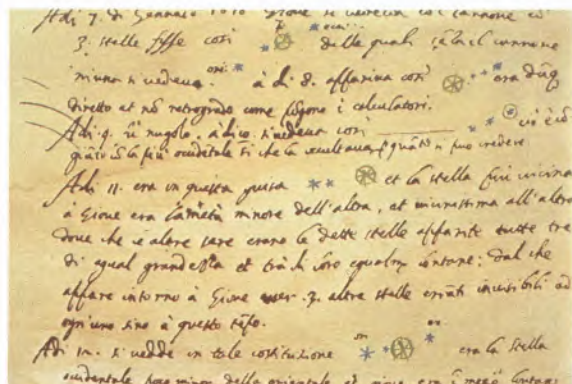 Adi 7. di Gennaio 1610 Giove si vedeva col Cannone cō
3. stelle fisse così delle quali sēza il cannone
niuna si vedeva. à dì 8. appariva così era dūq
diretto et nō retrogrado come pongono i calculatori.
Adi 9. fù nugolo. à dì 10. si vedeva così cioè cō
giūto cō la più occidentale si che la occultava p quāto si può credere
Adi 11. era in questa guisa et la stella più vicina
à Giove era la metà minore dell'altra, et vicinissima all'altra
dove che le altre sere erano le dette stelle apparite tutte tre
di egual grandezza et trà di loro egualmē lontane: dal che
appare intorno à Giove esser .3. altre stelle errāti invisibili ad
ogniuno sino à questo tēpo.
Adi 12. si vedde in tale costituzione era la stella
occidentale poco minor della orientale